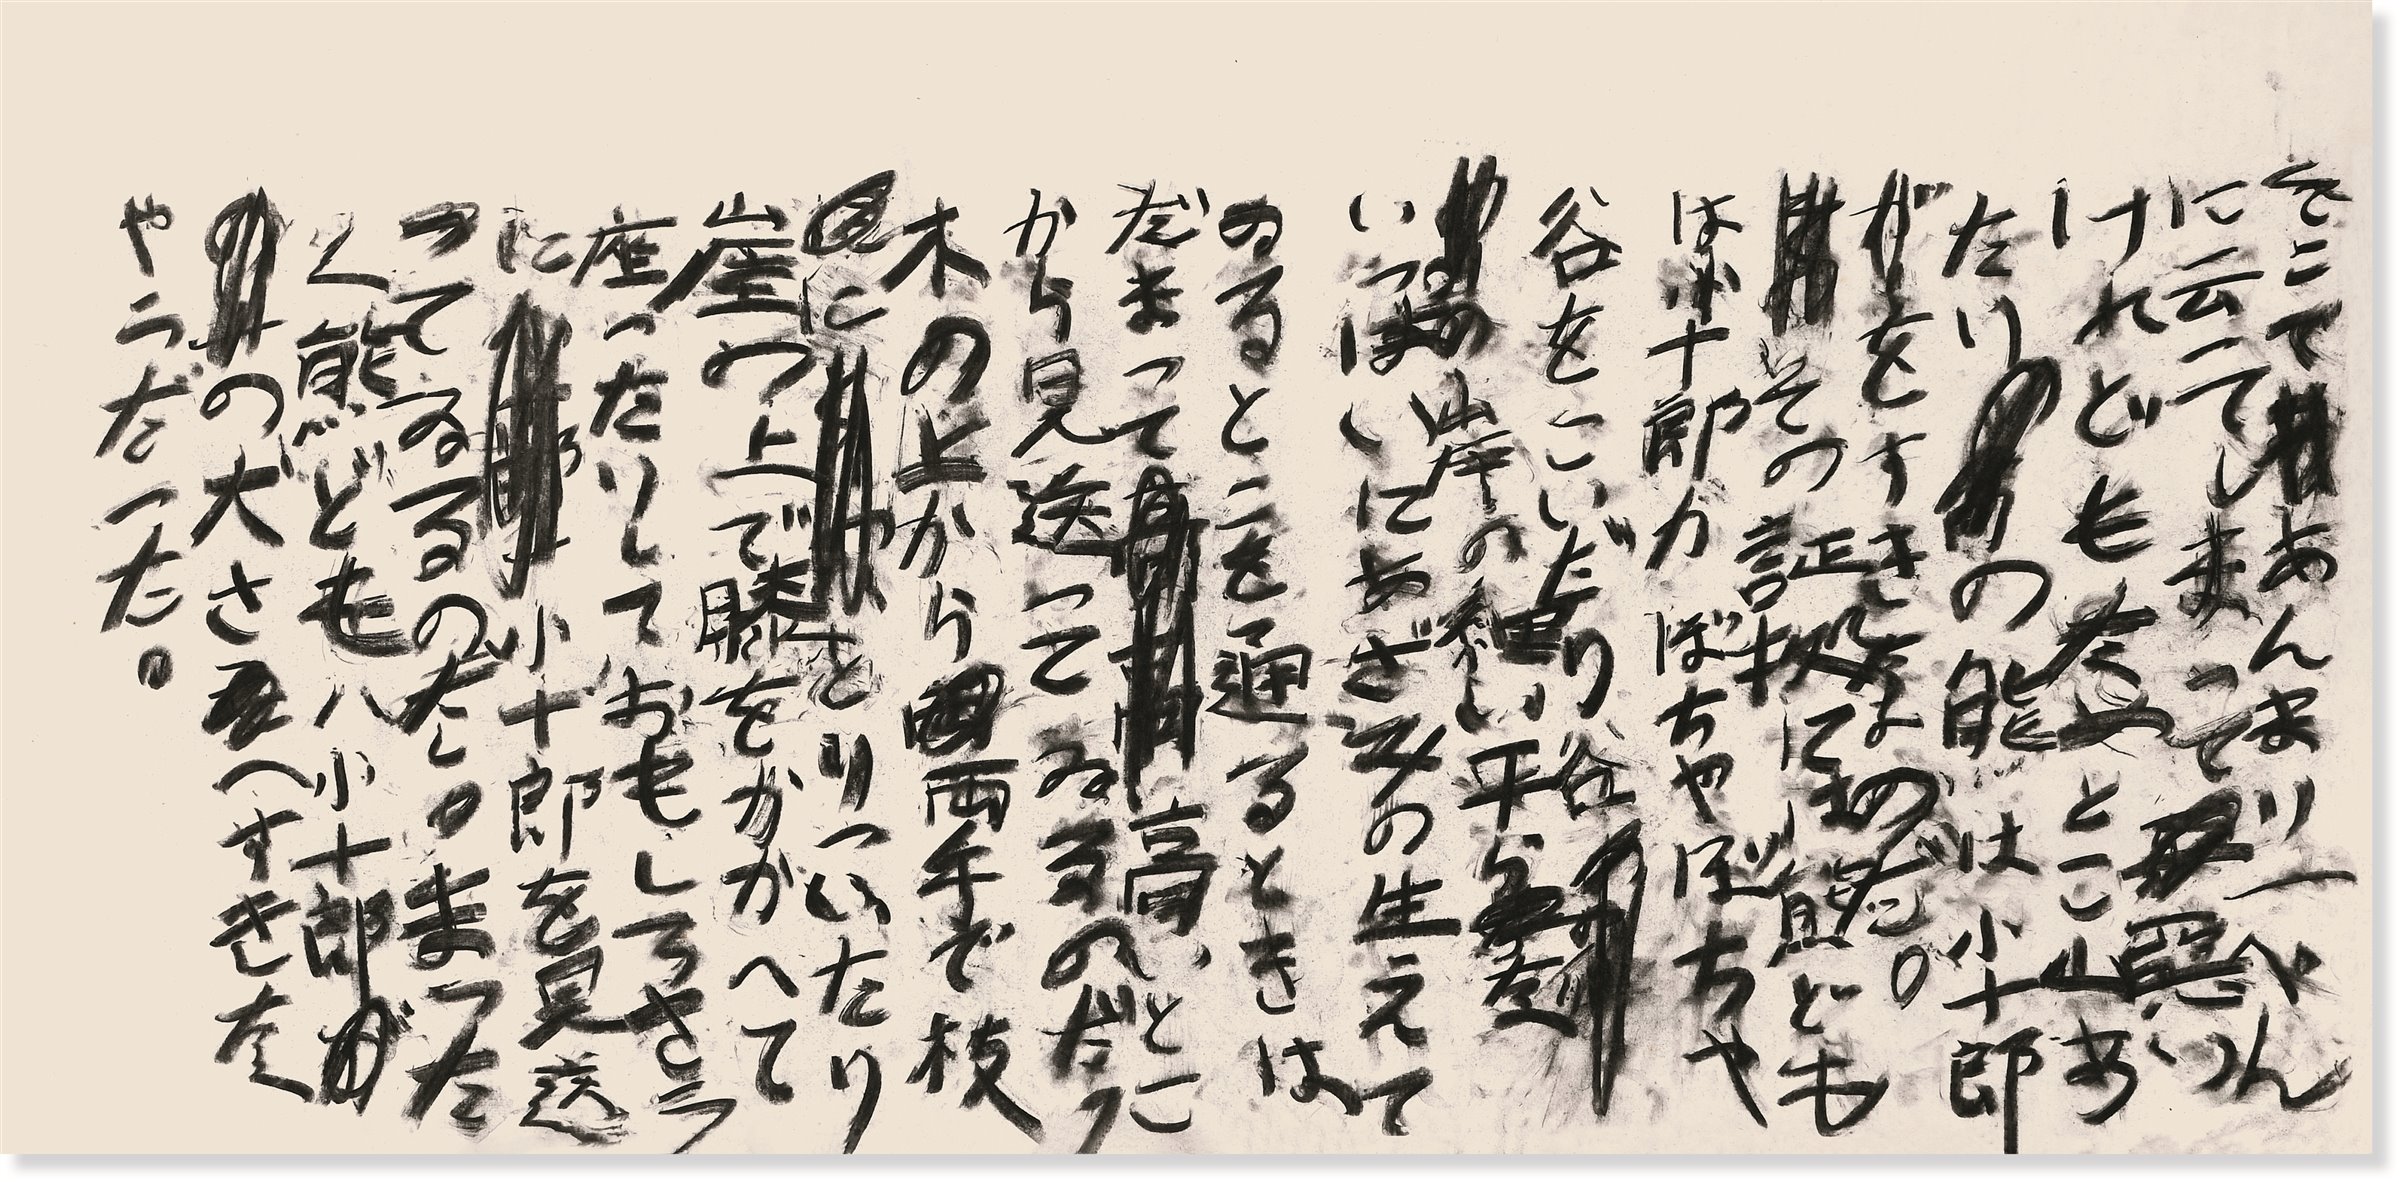 そこであんまり一ぺん
に云ってしまって悪い
けれどもなめとこ山あ
たりの熊は小十郎
をすきなのだ。
その証拠には熊ども
は小十郎がぼちやぼちや
谷をこいだり谷
の岸の細い平らな
いっぱいにあざみの生えて
ゐるとこを通るときは
だまって高いとこ
から見送ってゐるのだっ
木の上から両手で枝
にとりついたり
崖の上で膝をかかへて
座ったりしておもしろさう
に小十郎を見送
ってゐるのだ。まった
く熊どもハ小十郎
の犬さへすきな
やうだった。